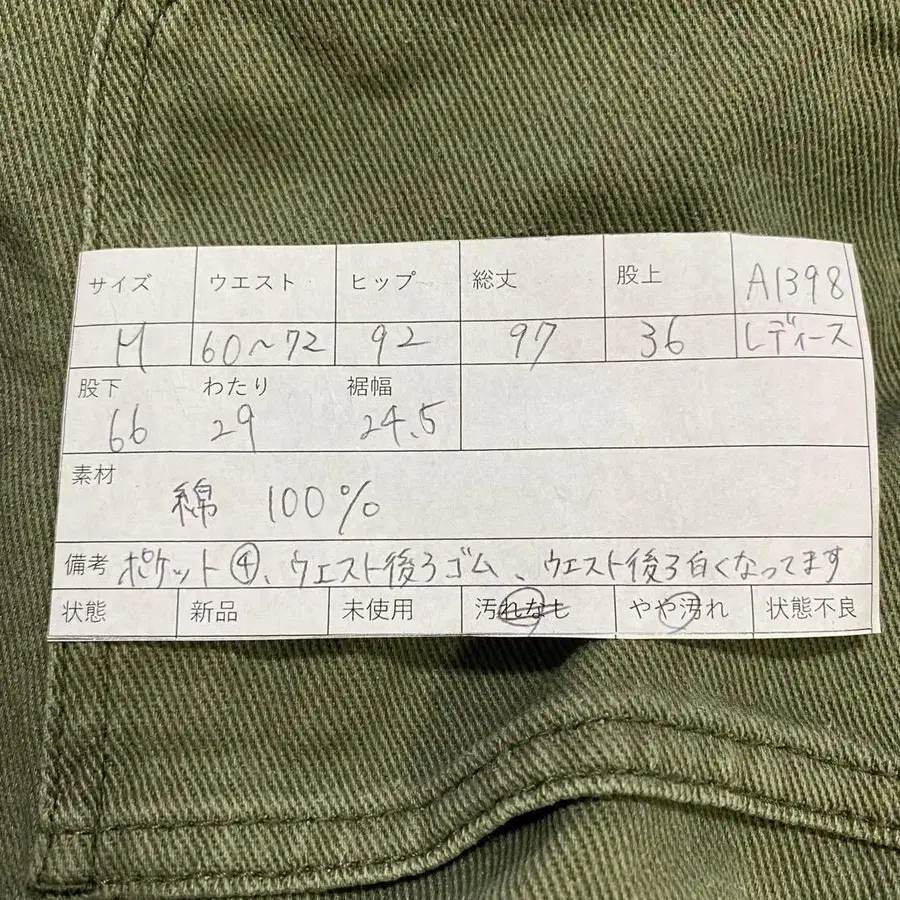 サイズ ウエスト ヒップ 総丈 股上 A1398
M 60～72 92 97 36 レディース
股下 わたり 裾幅
66 29 24.5
素材
綿 100%
備考 ポケット④、ウエスト後ろゴム、ウエスト後ろ白くなってます
状態 新品 未使用 汚れなし やや汚れ 状態不良